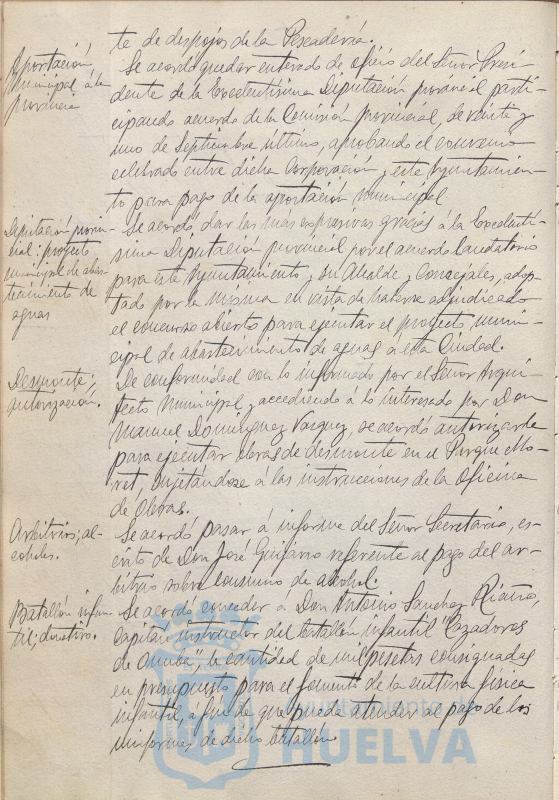 te de despojos de la Pescadería.
Aportación
municipal á la
provincia
Se acordó quedar enterado de oficio del Señor Presi-
dente de la Excelentísima Diputación provincial parti-
cipando acuerdo de la Comisión provincial, de veinte y
uno de Septiembre último, aprobando el convenio
celebrado entre dicha Corporación y este Ayuntamien-
to para pago de la aportación municipal
Diputación provin-
cial: proyecto
municipal de abas-
tecimiento de
aguas
Se acordó, dar las más expresivas gracias á la Excelentí-
sima Diputación provincial por el acuerdo laudatorio
para este Ayuntamiento, su Alcalde y Concejales, adop-
tado por la misma en vista de haberse adjudicado
el concurso abierto para ejecutar el proyecto muni-
cipal de abastecimiento de aguas á esta Ciudad.
Desmonte;
autorización.
De conformidad con lo informado por el Señor Arqui-
tecto Municipal y accediendo á lo interesado por Don
Manuel Dominguez Vazquez, se acordó autorizarle
para ejecutar obras de desmonte en el Parque Mo-
ret, sujetándose á las instrucciones de la Oficina
de Obras.
Arbitrios; al-
coholes.
Se acordó pasar á informe del Señor Secretario, es-
crito de Don José referente al pago del ar-
bitrio sobre consumo de alcohol.
Batallón infan-
til; donativo.
Se acordó conceder á Don Antonio Sanchez Riaño,
Capitán instructor del batallón infantil "Cazadores
de Onuba", la cantidad de mil pesetas consignadas
en presupuesto para el fomento de la cultura física
infantil, a fin de que pueda atender al pago de los
uniformes de dicho batallón.
Ayuntamiento de
HUELVA